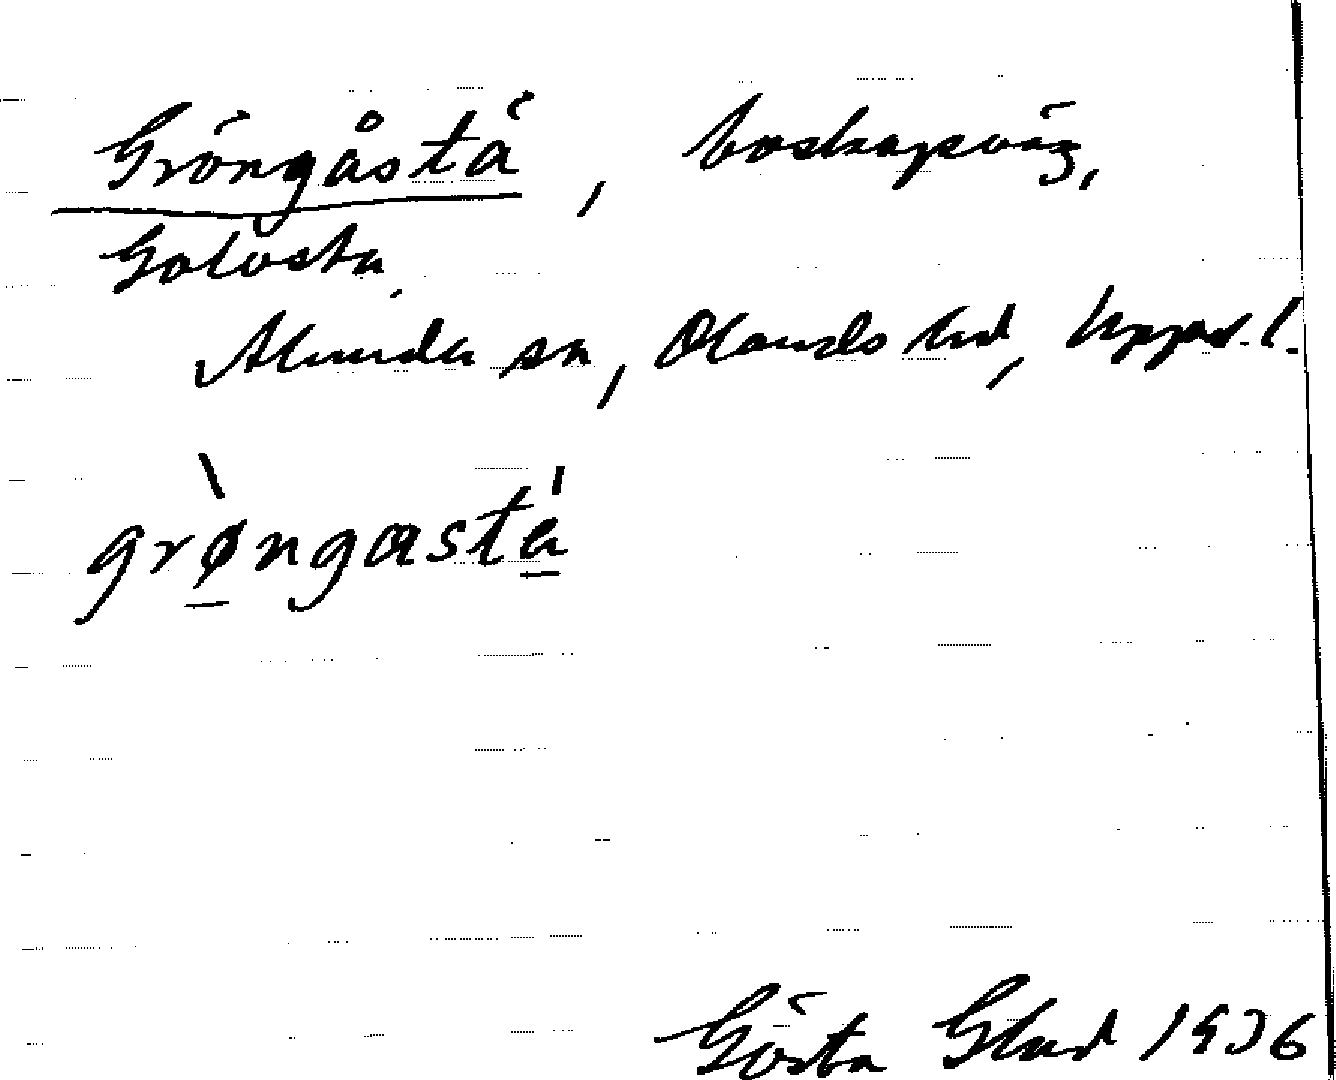 Gröngåstå, boskapsväg,
Golvsta,
Alunda sn, Olands hd, Uppsl. l.
grøngasta
Gösta Glad 1936